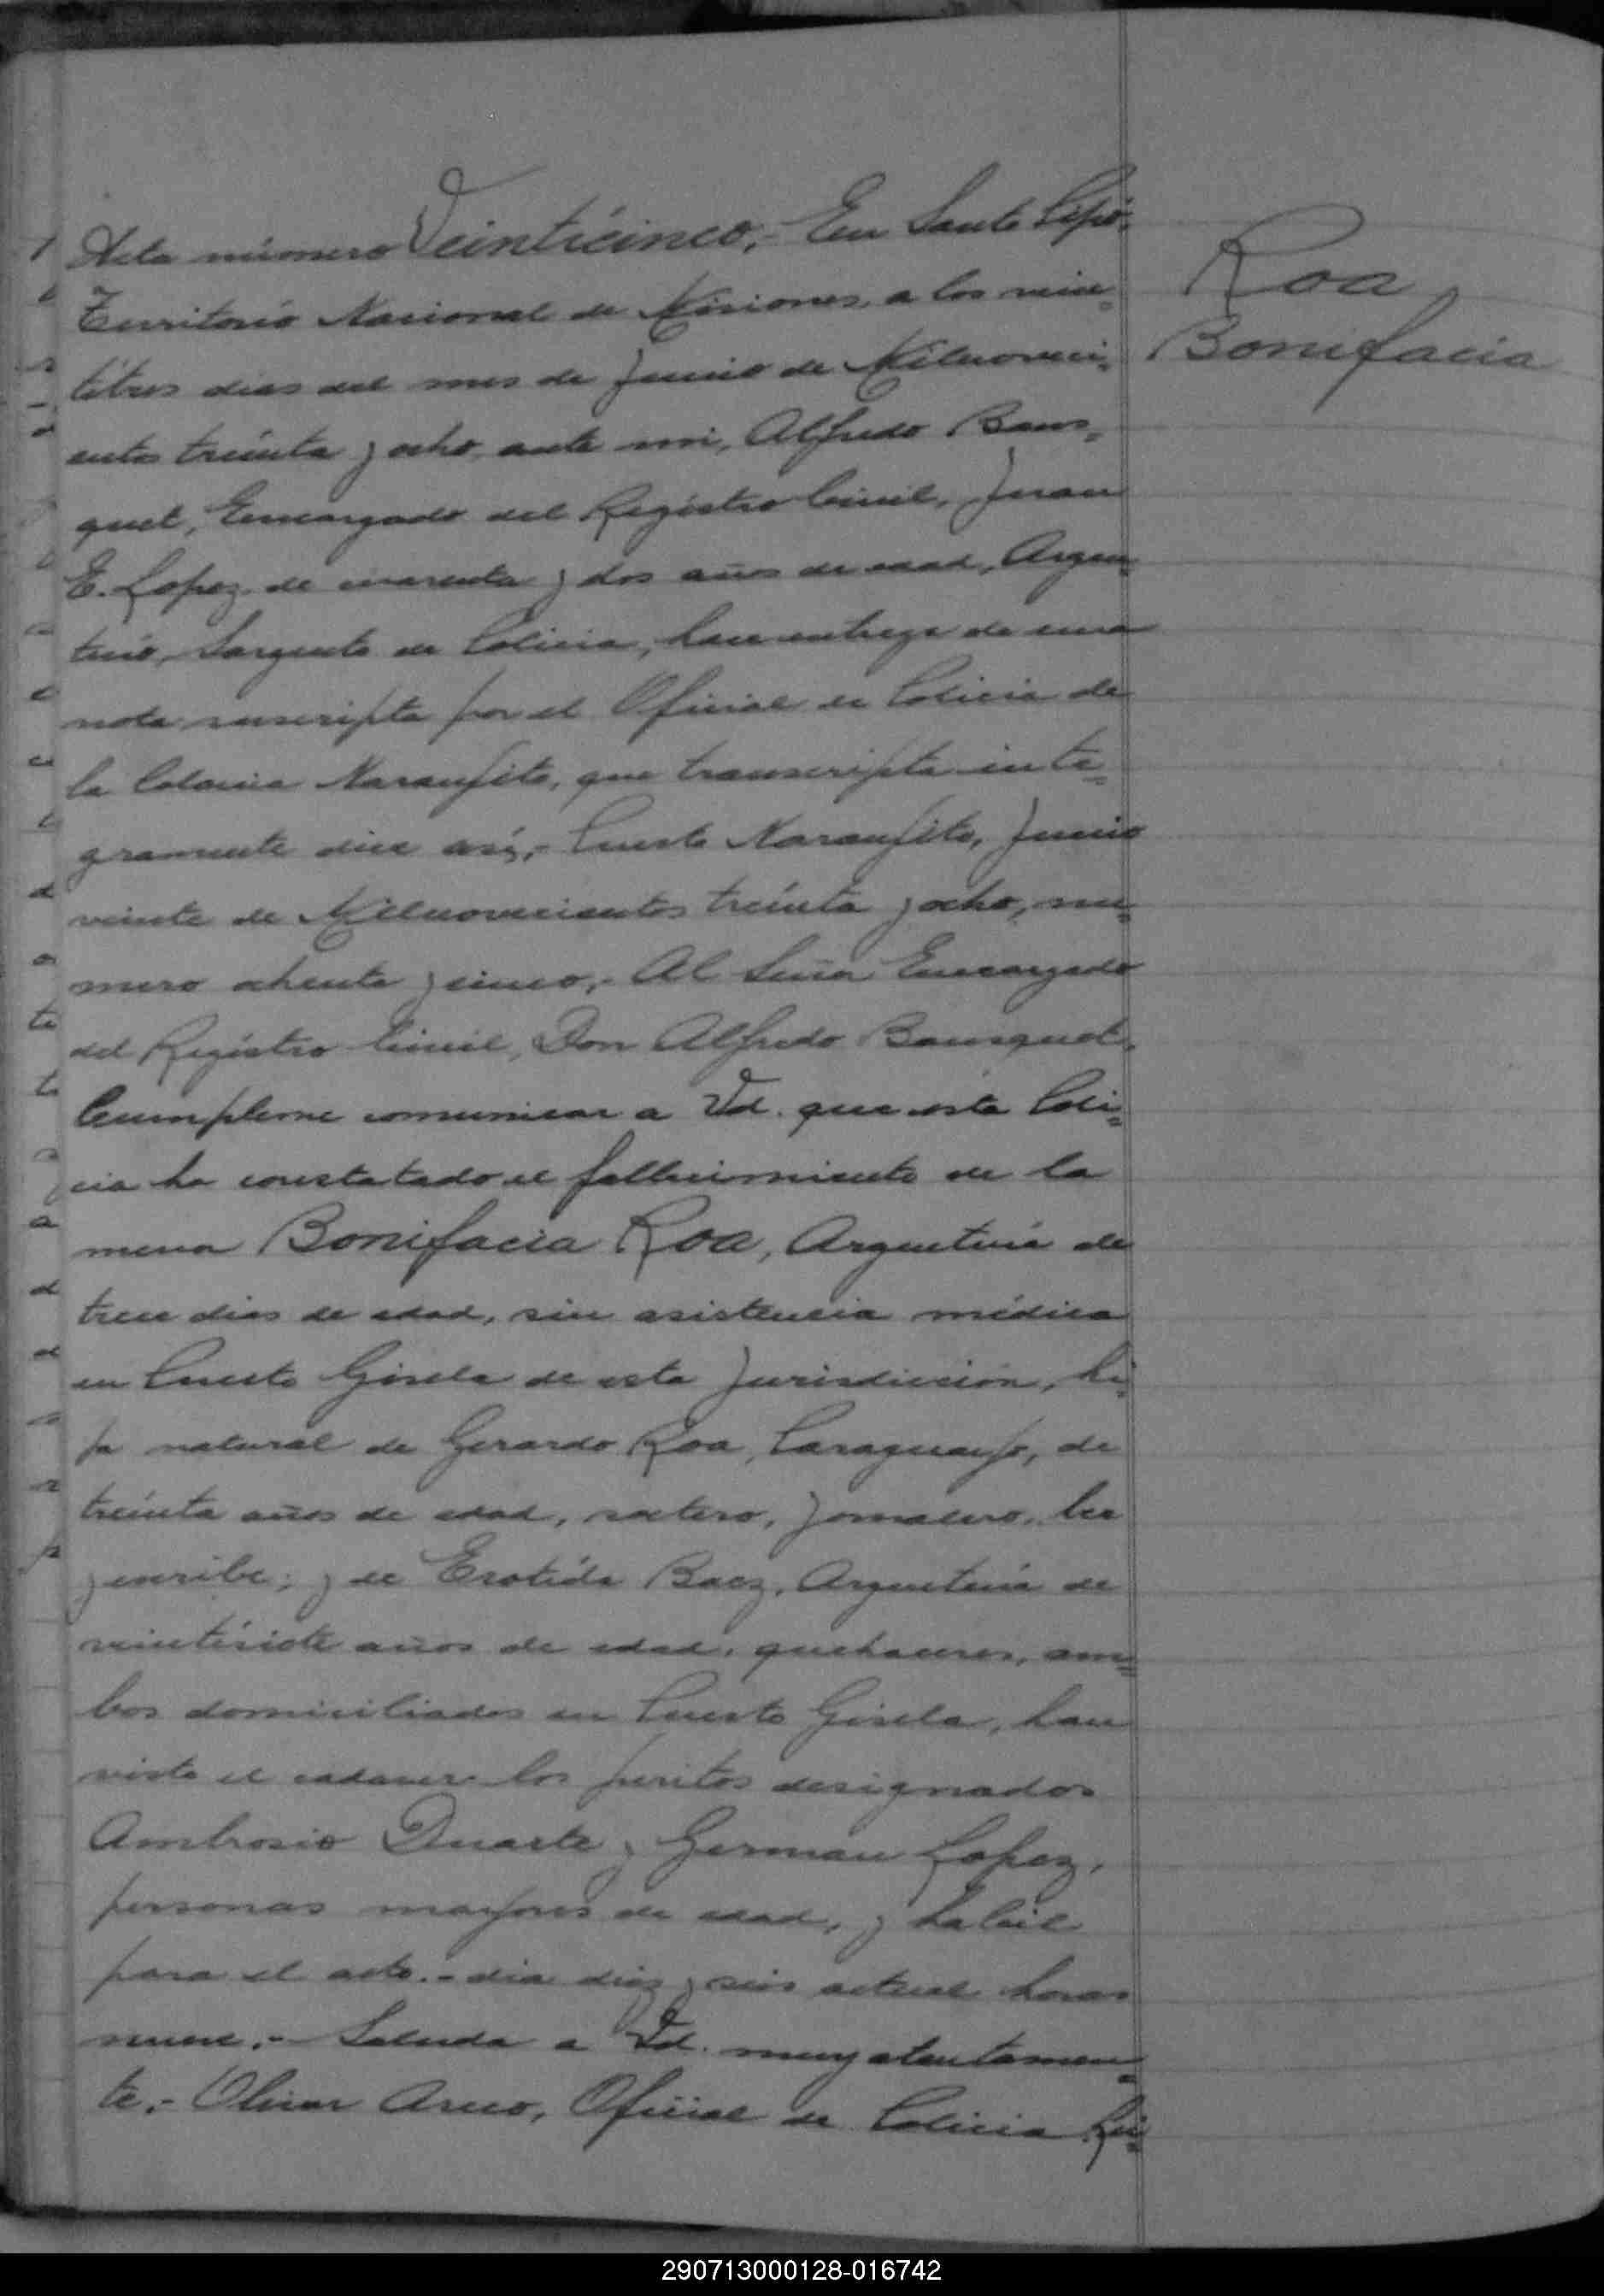 Acta número Veinticinco,- En Santo Pipó,
Territorio Nacional de Misiones, a los vein=
titres dias del mes de Junio de Milnoveci=
entos treinta y ocho, ante mi, Alfredo Bous=
quet, Encargado del Registro Civil, Juan
E. Lopez de cuarenta y dos años de edad, Argen=
tino, Sargento de Policia, hace entrega de una
nota suscripta por el Oficial de Policia de
la Colonia Naranjito, que transcripta inte=
gramente dice así,- Puesto Naranjito, Junio
veinte de Milnovecientos treinta y ocho, nu=
mero ochenta y cinco,- Al Señor Encargado
del Registro Civil, Don Alfredo Bousquet,
Cumpleme comunicar a Vd. que esta Poli=
cia ha constatado el fallecimiento de la
menor Bonifacia Roa, Argentina de
trece dias de edad, sin asistencia médica
en Puerto Gisela de esta Jurisdicción, hi=
ja natural de Gerardo Roa, Paraguayo, de
treinta años de edad, soltero, Jornalero, lee
y escribe; y de Erotida Baez, Argentina de
veintisiete años de edad, quehaceres, am=
bos domiciliados en Puerto Gisela, han
visto el cadaver los peritos designados
Ambrosio Duarte y German Lopez,
personas mayores de edad, y habil
para el acto.- dia diez y seis actual horas
nueve.- Saluda a Vd. muy atentamen=
te,- Oficial de Policia
Roa
Bonifacia
290713000128-016742